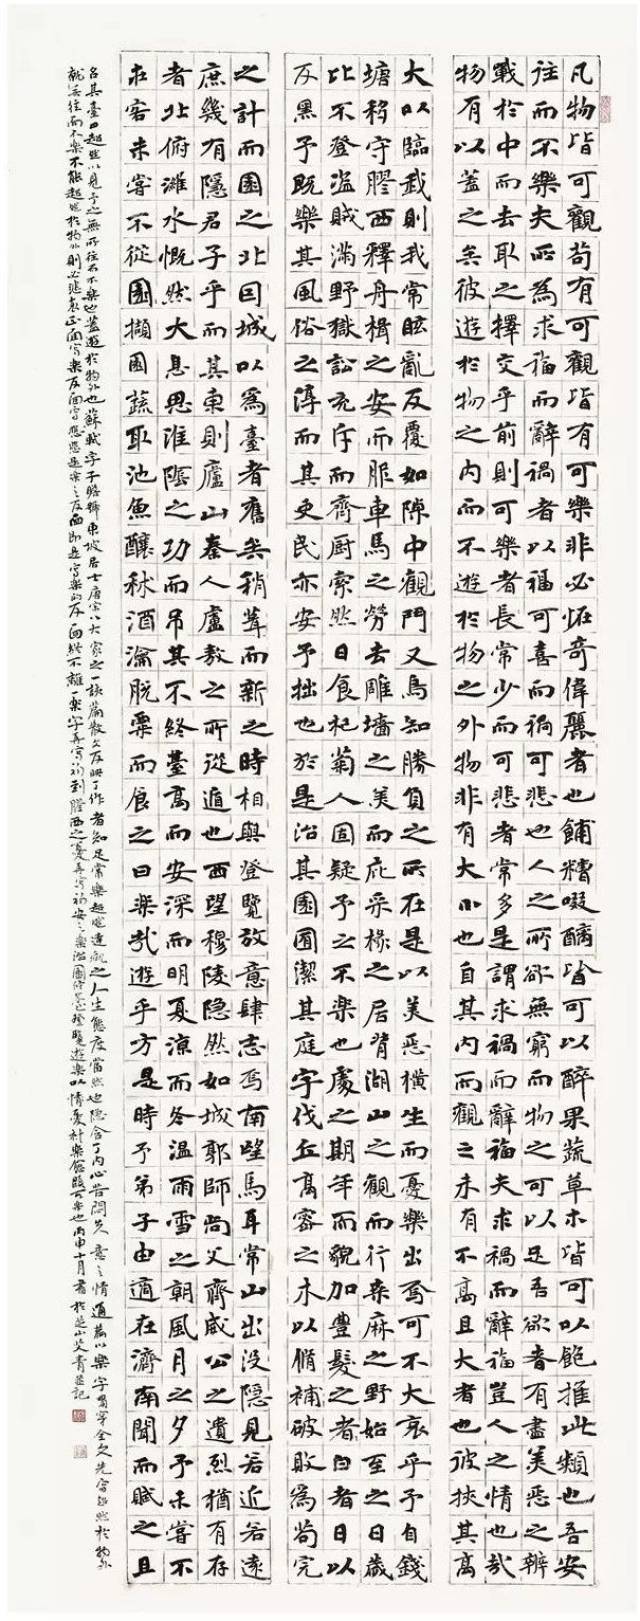 凡物皆可觀苟有可觀皆有可樂非必恠奇偉麗者也餔糟啜醨皆可以醉果蔬草木皆可以飽推此類也吾安
往而不樂夫所為求福而辭禍者以福可喜而禍可悲也人之所欲無窮而物之可以足吾欲者有盡美惡之辨
戰於中而去取之擇交乎前則可樂者長常少而可悲者常多是謂求禍而辭福夫求禍而辭福豈人之情也哉
物有以蓋之矣彼遊於物之內而不遊於物之外物非有大小也自其內而觀之未有不高且大者也彼挾其高
大以臨我則我常眩亂反覆如隙中觀鬥又烏知勝負之所在是以美惡橫生而憂樂出焉可不大哀乎予自錢
塘移守膠西釋舟楫之安而服車馬之勞去雕墻之美而庇采椽之居背湖山之觀而行桑麻之野始至之日歲
比不登盜賊滿野獄訟充斥而齋厨索然日食杞菊人固疑予之不樂也處之期年而貌加豐髮之者白者日以
反黑予既樂其風俗之淳而其吏民亦安予拙也於是治其園囿潔其庭宇伐丘高密之木以脩補破敗為苟完
之計而園之北因城以為臺者舊矣稍葺而新之時相與登覽放意肆志焉南望馬耳常山出沒隱見若近若遠
庶幾有隱君子乎而其東則廬山秦人盧敖之所從遁也西望穆陵隱然如城郭師尚父齊威公之遺烈猶有存
者北俯濰水慨然大息思淮陰之功而吊其不終臺高而安深而明夏涼而冬溫雨雪之朝風月之夕予未嘗不
在客未嘗不從園擷園蔬取池魚釀秫酒瀹脫粟而食之曰樂哉遊乎方是時予弟子由適在濟南聞而賦之且
名其臺曰超然以見予之無所往而不樂也蓋遊於物外也蘇軾字子瞻號東坡居士唐宋八大家之一該篇散文反映了作者知足常樂超然達觀之人生態度當然也隱含了內心苦悶失意之情通篇以樂字貫穿全文先寫超然於物外
就無往而不樂不能超然於物外則必悲哀正面寫樂反面寫悲悲是樂之反面即是寫樂的反面終不離一樂字再寫初到膠西之憂再寫初安之樂治園修臺登覽遊樂以情憂可樂也丙申十月書於山艾青並記